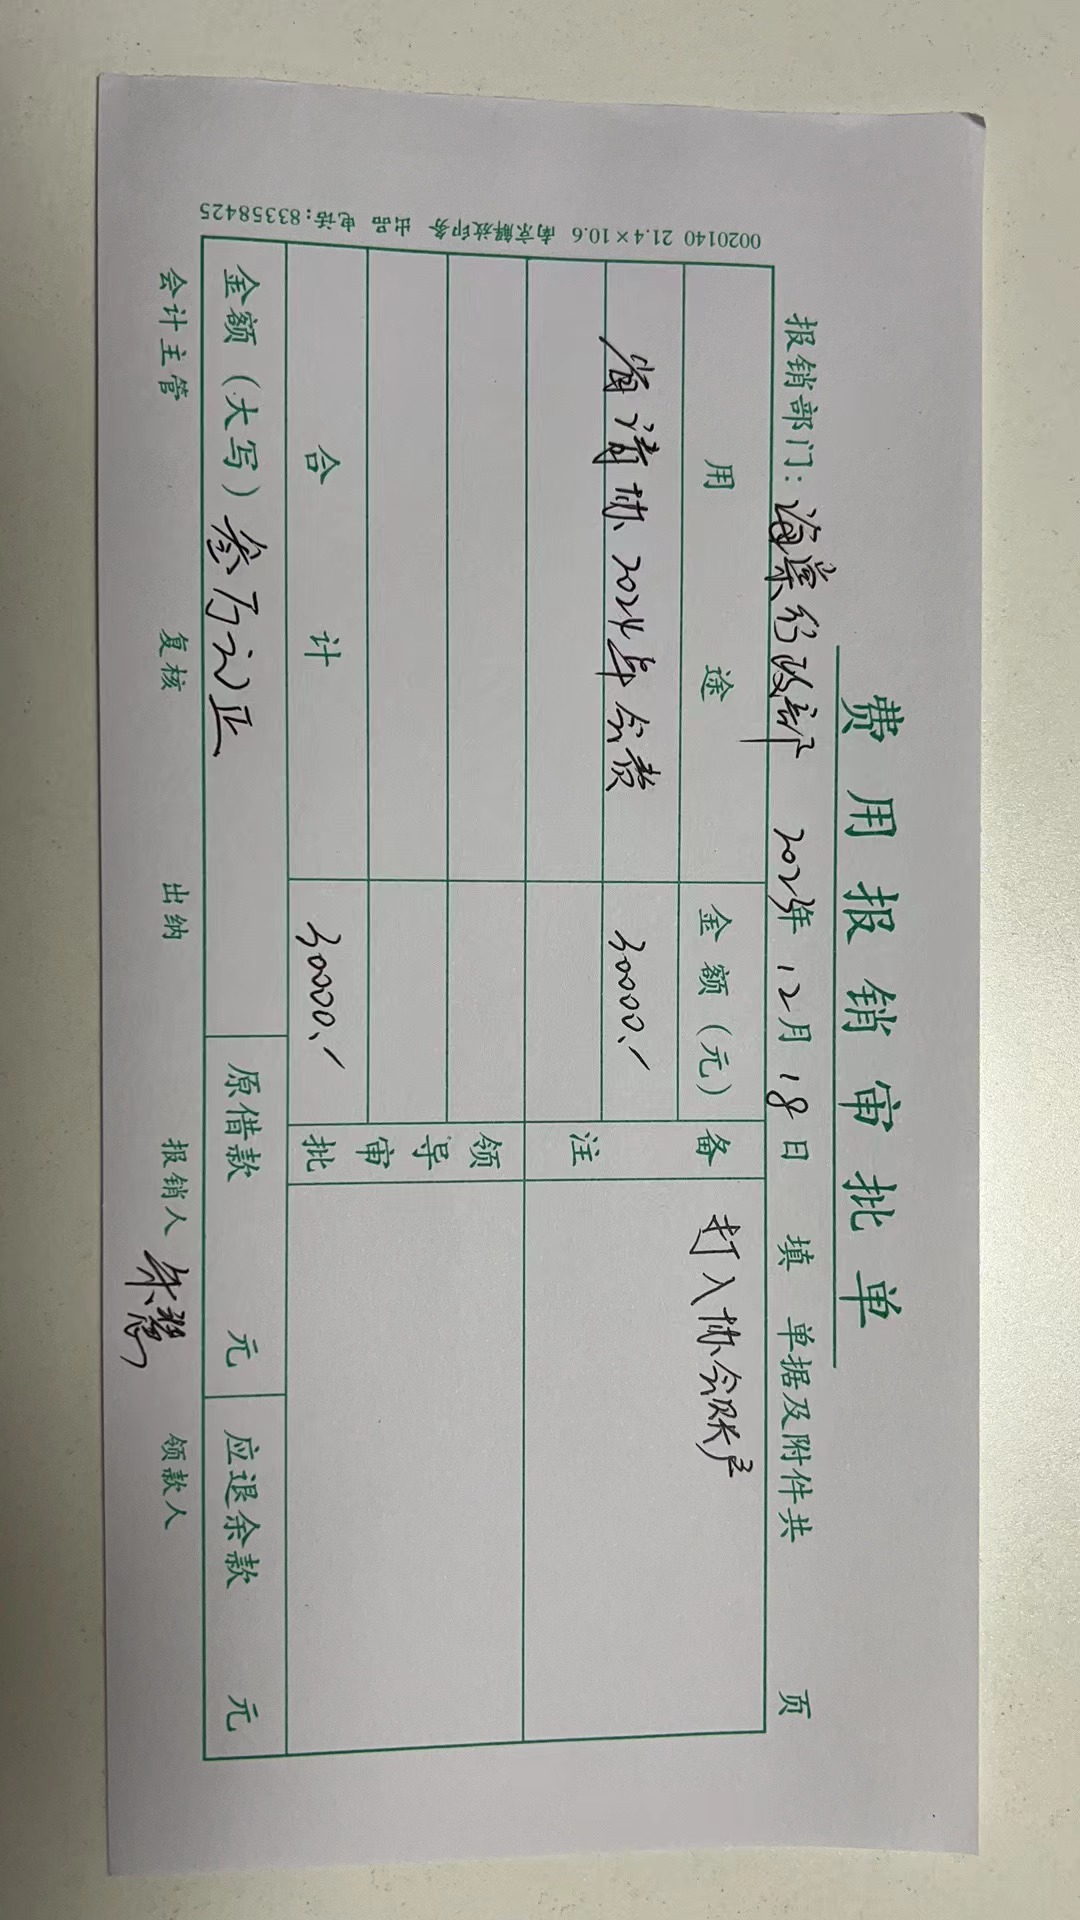 费用报销审批单
报销部门：海棠行政部 2023年 12月 18日 填 单据及附件共 页
用途 金额（元） 备注 打入协会账户
省清协2024年会费 30000.
合计 30000. 领导审批
金额（大写）叁万元正 原借款 元 应退余款 元
会计主管 复核 出纳 报销人 朱 领款人
0020140 21.4×10.6 南京解放印务 出品 电话：83358425